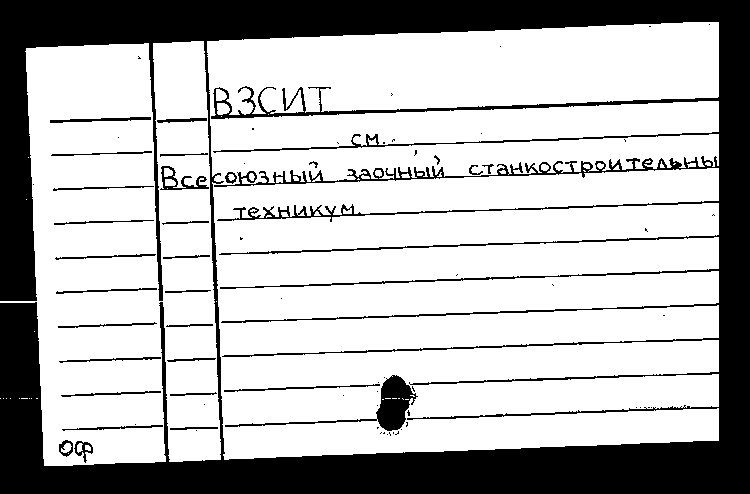 ВЗСИТ
см.
Всесоюзный заочный станкостроительны
техникум.
ОФ